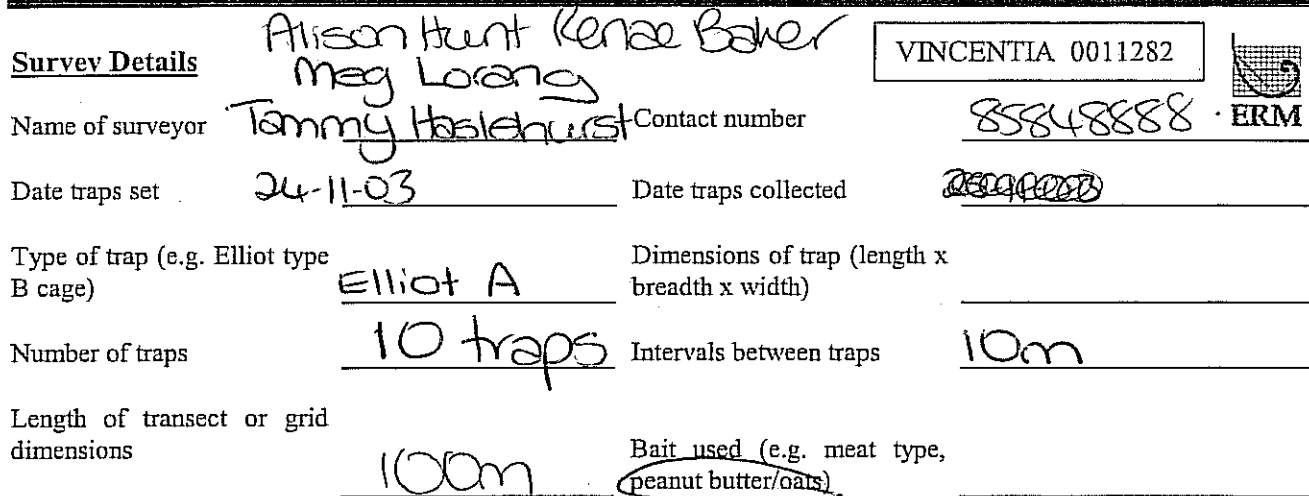 Alison Hunt Renae Baker
Survey Details
Meg Lorang
VINCENTIA 0011282
ERM
Name of surveyor Tammy Haslehurst Contact number 85848888
Date traps set 24-11-03 Date traps collected
Type of trap (e.g. Elliot type
B cage) Elliot A
Dimensions of trap (length x
breadth x width)
Number of traps 10 traps Intervals between traps 10m
Length of transect or grid
dimensions 100m
Bait used (e.g. meat type,
peanut butter/oats)